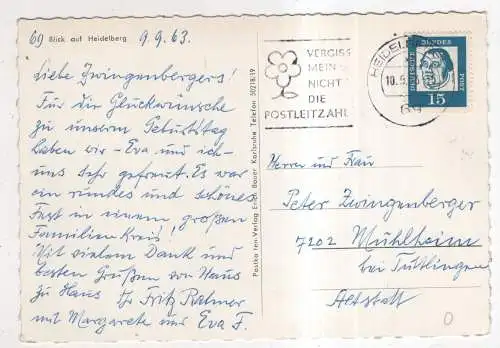 69 Blick auf Heidelberg 9.9.63.
Liebe Zwingenbergers!
Für die Glückwünsche
zu unserm Geburtstag
haben wir - Eva und ich -
uns sehr gefreut. Es war
ein rundes und schönes
Fest in einem großen
Familien Kreis!
Mit vielem Dank und
besten Grüßen von Haus
zu Haus Ihr Fritz
mit Margarete und Eva F.
Postkarten-Verlag Erich Bauer Karlsruhe Telefon 50218/19
VERGISS
MEIN
NICHT
DIE
POSTLEITZAHL
HEIDELBERG
10.9.
69
DEUTSCHE BUNDESPOST
15
Herrn und Frau
Peter Zwingenberger
7202 Mühlheim
bei Tuttlingen
Altstatt